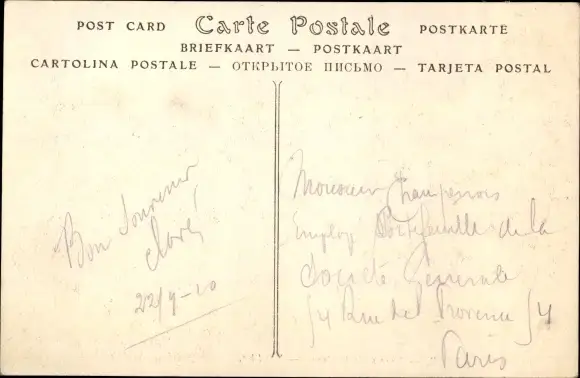 POST CARD Carte Postale POSTKARTE
BRIEFKAART — POSTKAART
CARTOLINA POSTALE — ОТКРЫТОЕ ПИСЬМО — TARJETA POSTAL
Bon Souvenir
22/9-10
Monsieur
Employé Portefeuille de la
Société Générale
54 Rue de Provence 54
Paris